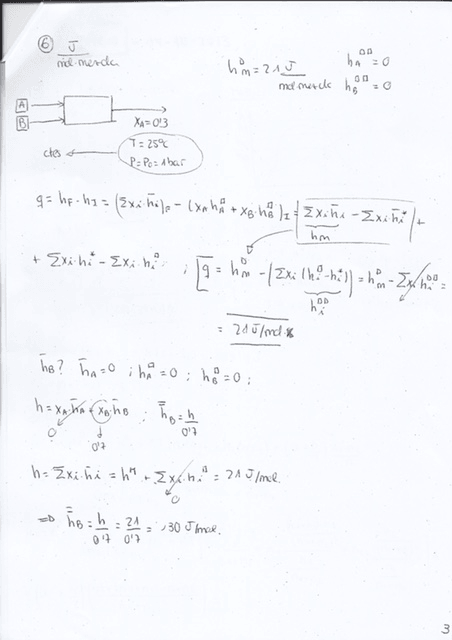 6 J / mol·mezcla
h_m^□ = 21 J / mol mezcla h_A^□□ = 0
h_B^□□ = 0
A
B x_A = 0'3
ctes T = 25ºC
P = P_0 = 1 bar
q = h_F - h_I = (Σx_i·h̄_i)_F - (x_A h_A^□ + x_B·h_B^□)_I = Σx_i·h̄_i - Σx_i·h_i^* +
h_m
+ Σx_i·h_i^* - Σx_i·h_i^□ ; q = h_m^□ - (Σx_i (h_i^□ - h_i^*)) = h_m^□ - Σx_i h_i^□□ =
h_i^□□
= 21 J/mol
h̄_B? h̄_A = 0 ; h_A^□ = 0 ; h_B^□ = 0 ;
h = x_A·h̄_A + x_B·h̄_B ; h̄_B = h / 0'7
0 0'7
h = Σx_i·h̄_i = h^M + Σx_i·h_i^□ = 21 J/mol.
0
⇒ h̄_B = h / 0'7 = 21 / 0'7 = 30 J/mol.
3